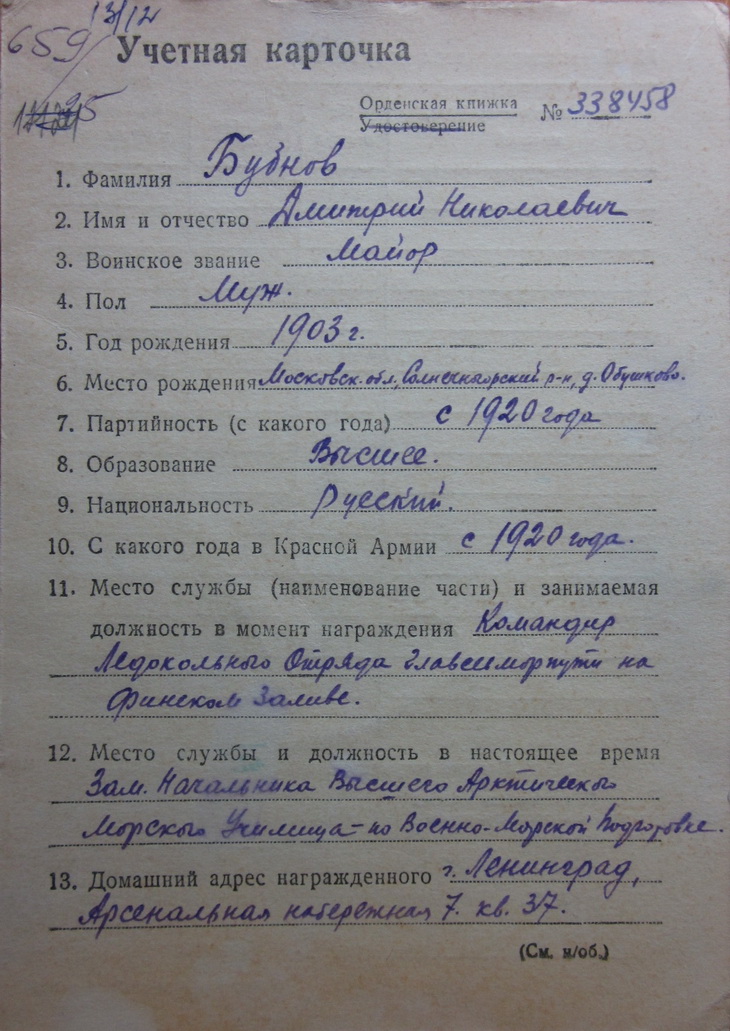 13/12
659
Учетная карточка
25
Орденская книжка
Удостоверение
№ 338458
1. Фамилия Бубнов
2. Имя и отчество Дмитрий Николаевич
3. Воинское звание Майор
4. Пол Муж.
5. Год рождения 1903 г.
6. Место рождения Московск. обл., Солнечногорский р-н, д. Обушково.
7. Партийность (с какого года) с 1920 года
8. Образование Высшее.
9. Национальность Русский.
10. С какого года в Красной Армии с 1920 года.
11. Место службы (наименование части) и занимаемая
должность в момент награждения Командир
Ледокольного Отряда Главсевморпути на
Финском Заливе.
12. Место службы и должность в настоящее время
Зам. Начальника Высшего Арктического
Морского Училища - по Военно-Морской Подготовке.
13. Домашний адрес награжденного г. Ленинград,
Арсенальная набережная 7. кв. 37.
(См. н/об.)